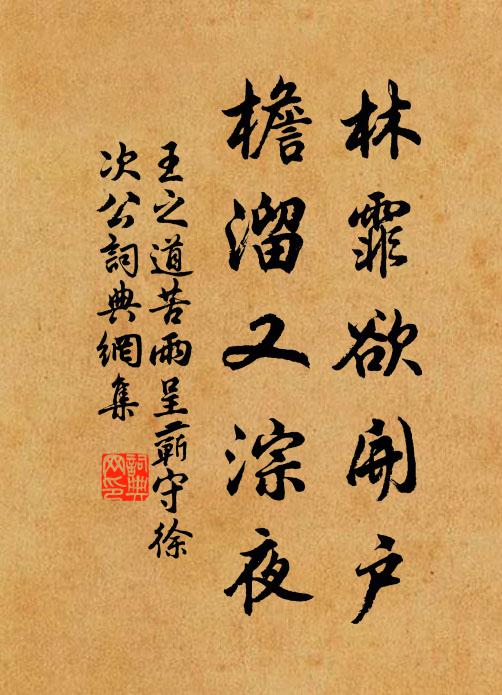 林霏欲開戶
檐溜又淙夜
王之道苦雨呈蘄守徐
次公詞典網集
詞典
网印